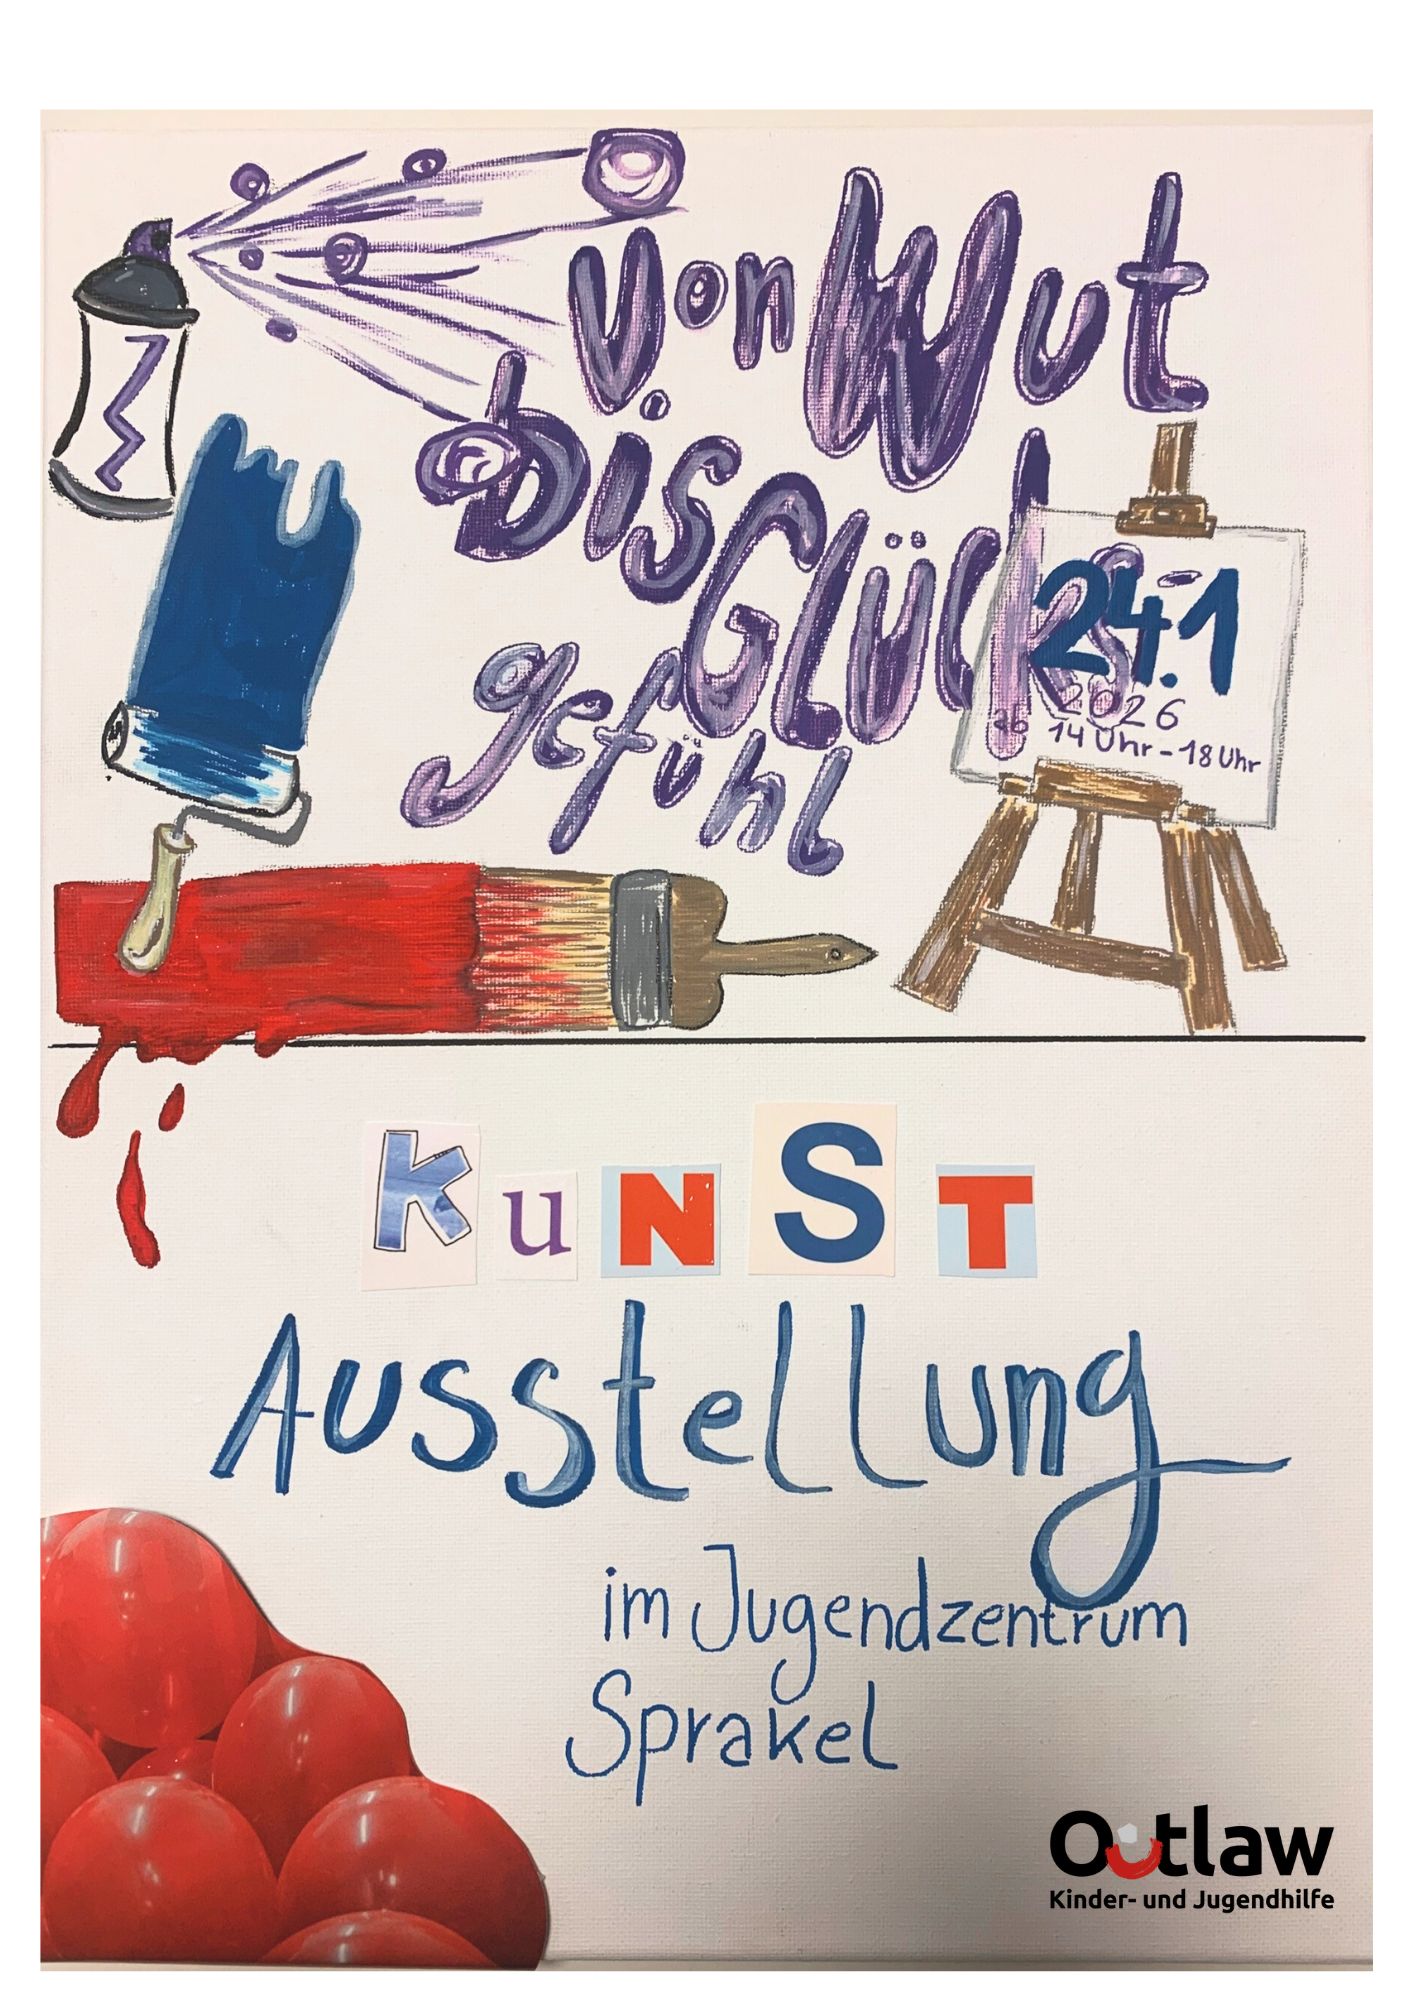 Von Wut
bis Glücks-
gefühl
24.1
2026
ab 14 Uhr - 18 Uhr
KuNST
Ausstellung
im Jugendzentrum
Sprakel
Outlaw
Kinder- und Jugendhilfe